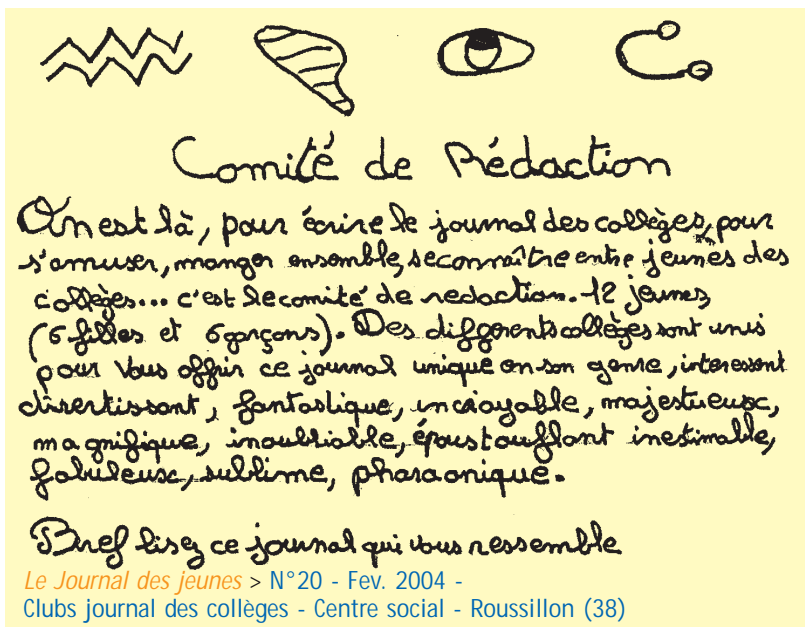 Comité de Rédaction
On est là, pour écrire le journal des collèges, pour
s'amuser, manger ensemble, se connaître entre jeunes des
collèges... c'est le comité de redaction. 12 jeunes
(6 filles et 6 garçons). Des différents collèges sont unis
pour vous offrir ce journal unique en son genre, interessent
divertissant, fantastique, incroyable, majestueux,
magnifique, inoubliable, époustouflant inestimable,
fabuleux, sublime, pharaonique.
Bref lisez ce journal qui vous ressemble
Le Journal des jeunes > N°20 - Fev. 2004 -
Clubs journal des collèges - Centre social - Roussillon (38)